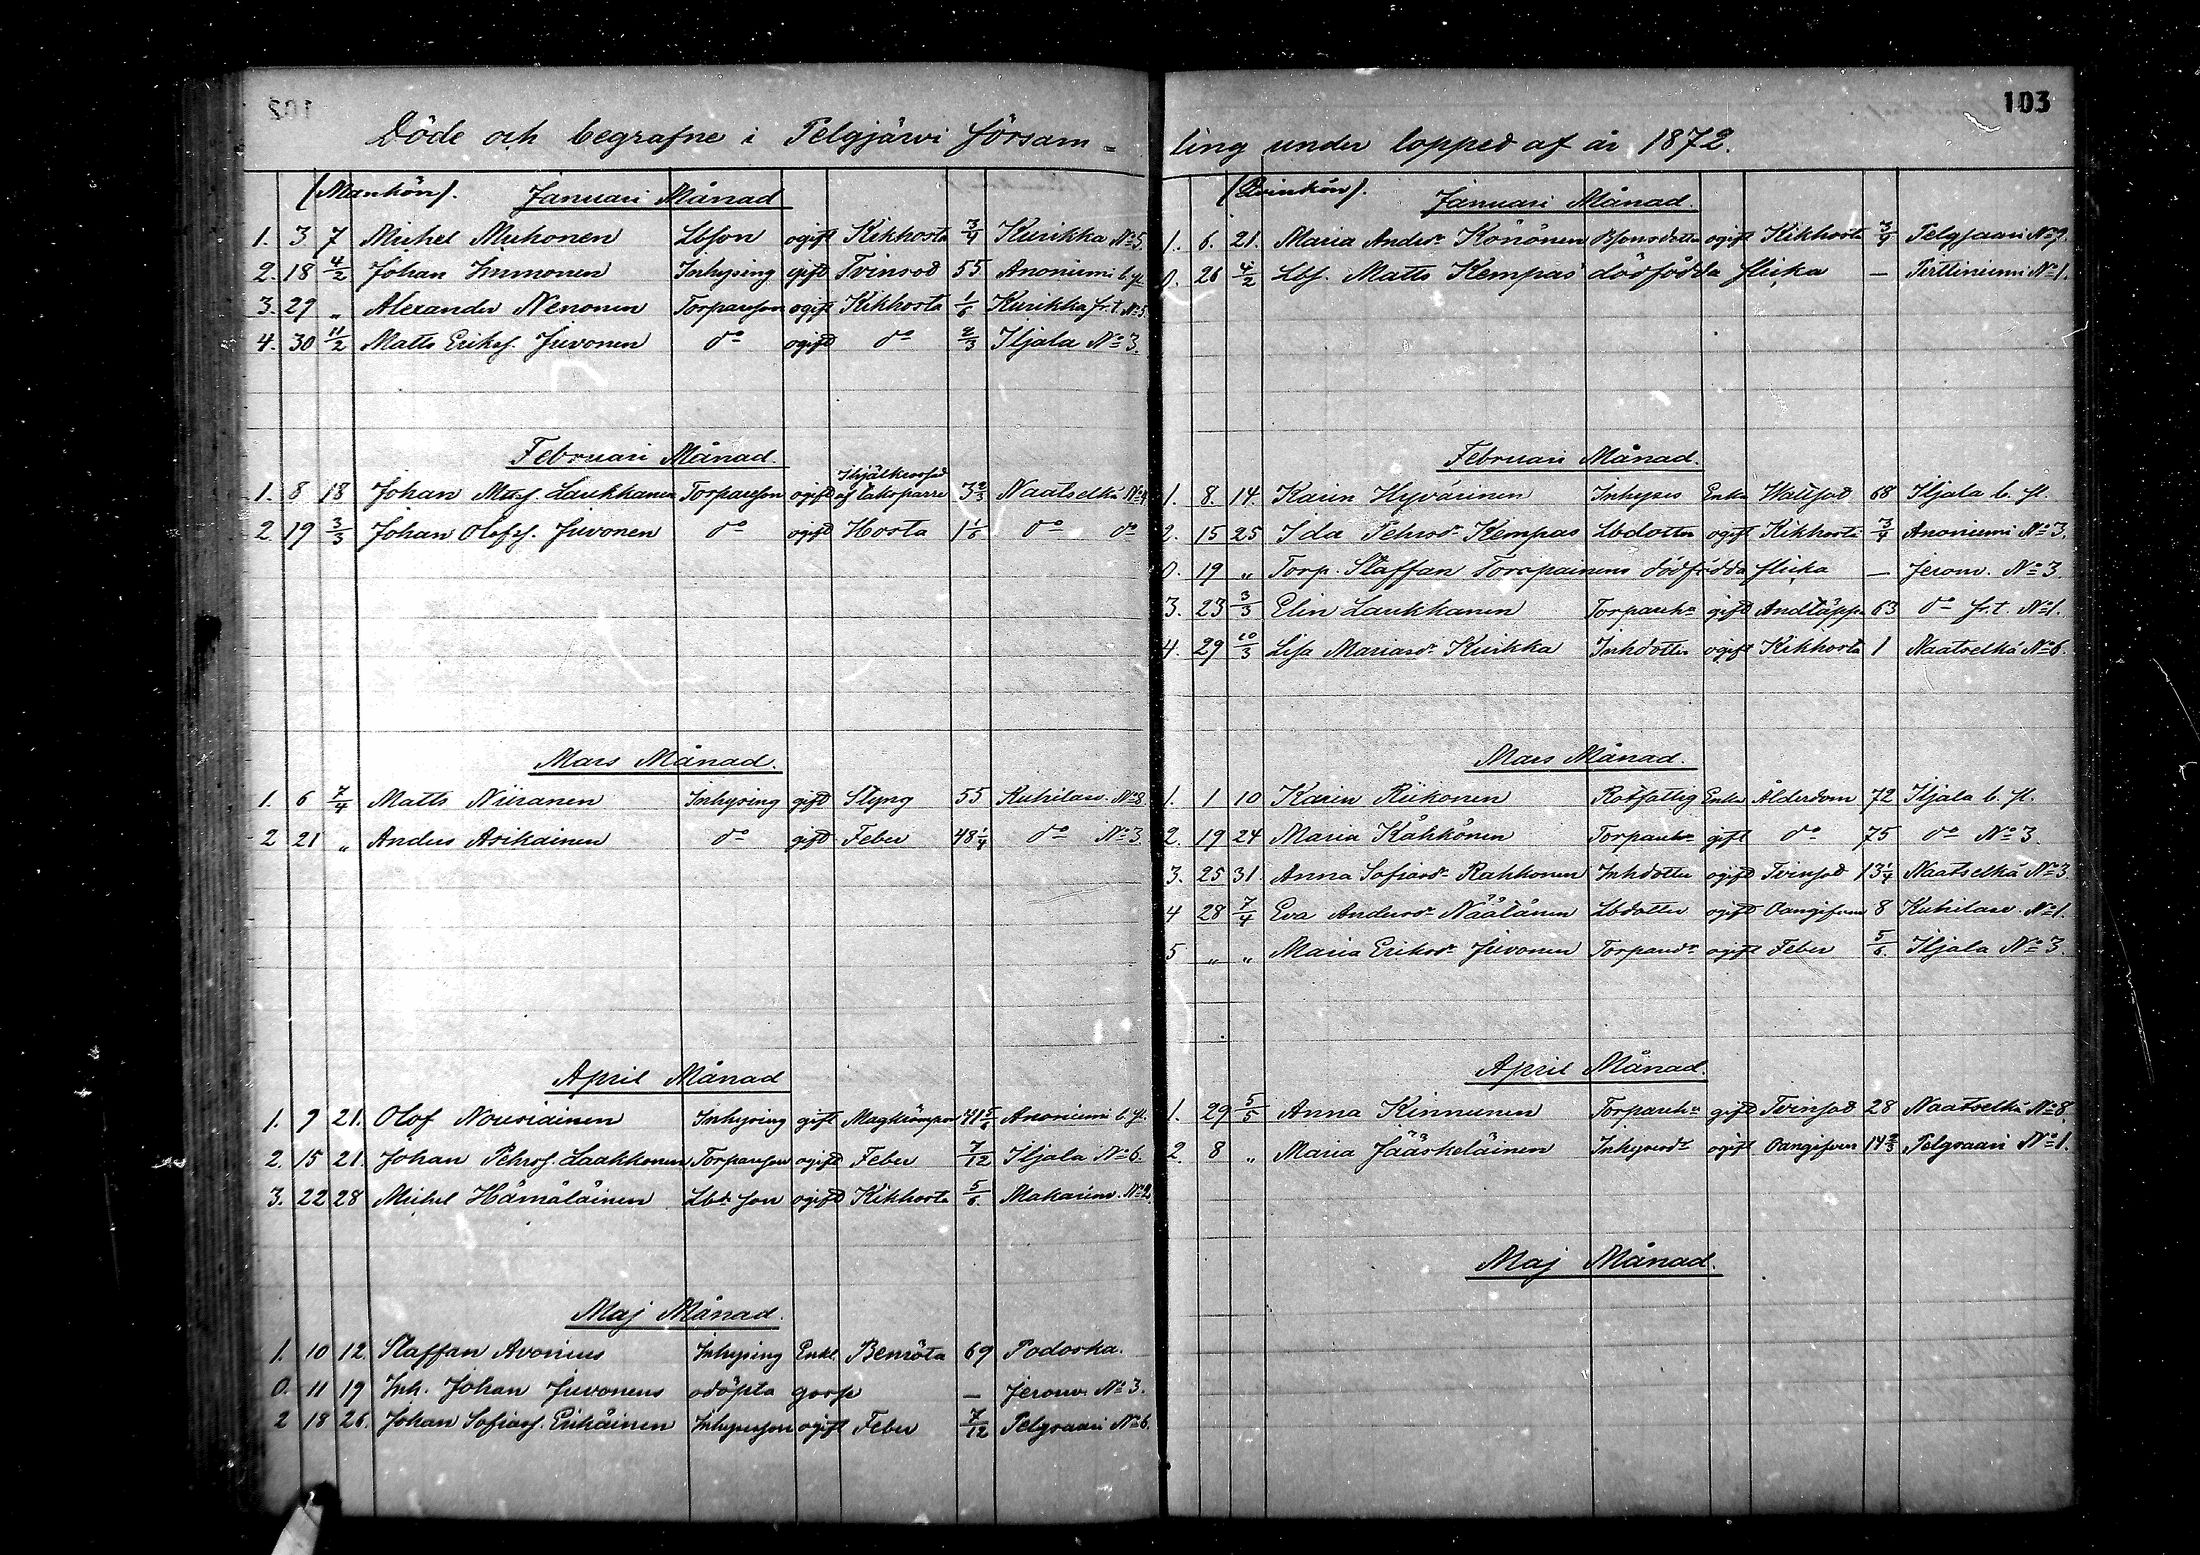 103
Döde och begrafne i Pelgjärvi församling under lopped af år 1872.
(Mankön). Januari Månad
1. 3 7 Michel Muhonen Lbson ogift Kikhosta 3/4 Kurikka No 5.
2. 18 4/2 Johan Immonen Inhysing gift Tvinsod 55 Anoniemi b. fl.
3. 29 „ Alexander Nenonen Torpareson ogift Kikhosta 1/6 Kurikka fr. t. No 5.
4. 30 11/2 Matts Eriksf. Juvonen do ogift do 2/3 Iljala No 3.
Februari Månad.
1. 8 18 Johan Matsf. Laukkanen Torpareson ogift 3 2/3 Naatselkä
2 19 3/3 Johan Olofsf. Juvonen do ogift Hosta 1 1/6 do do
Mars Månad.
1. 6 7/4 Matts Niiranen Inhysing gift Styng 55 Kuhilasv. No 8
2 21 „ Anders Asikainen do gift Feber 48 1/4 do No 3.
April Månad
1. 9 21. Olof Nousiainen Inhysing gift 41 5/6 Anoniemi b. fl.
2. 15 21. Johan Pehrsf. Laakkonen Torpareson ogift Feber 7/12 Iljala No 6.
3. 22 28 Michel Hämäläinen Lbs son ogift Kikhosta 5/6. No 2.
Maj Månad.
1. 10 12. Staffan Avonius Inhysing Enkl. Benröta 69 Podoska.
0. 11 19 Inh. Johan Juvonens odöpta gosse — Jeronv. No 3.
2 18 26. Johan Sofiasf. Inhyseson ogift Feber 7/12 Pelgsaari No 6.
(Qvinkön). Januari Månad.
1. 6. 21. Maria Andersdr Könönen ogift Kikhosta 3/4 Pelgsaari
0. 26 4/2 Lbf. Matts Kempas' dödfödda flicka — Pirttiniemi No 1.
Februari Månad.
1. 8. 14. Karin Hyvärinen Inhyses Enka Wattsot 68 Iljala b. fl.
2. 15 25 Ida Pehrsdr Kempas Lbdotter ogift Kikhosta 3/4 Anoniemi No 3.
0. 19 „ Torp. Staffan dödfödda flicka — Jeronv. No 3.
3. 23 3/3 Elin Laukkanen gift Andtäppa 63 do fr. t. No 1.
4. 29 10/3 Lisa Mariasdr Kurikka Inhdotter ogift Kikhosta 1 Naatselkä No 6.
Mars Månad.
1. 1 10 Karin Riikonen Rotfattig Enka Ålderdom 72 Iljala b. fl.
2. 19 24 Maria Kähkönen gift do 75 do No 3.
3. 25 31. Anna Sofiasdr Rahkonen Inhdotter ogift Tvinsod 13 1/4 Naatselkä No 3
4 28 7/4 Eva Andersdr Näätänen Lbdotter ogift Oangifven 8 Kuhilasv. No 1.
5 „ „ Maria Eriksdr Juvonen Torparedr ogift Feber 5/6. Iljala No 3.
April Månad.
1. 29 5/5 Anna Kinnunen gift Tvinsod 28 Naatselkä No 8.
2. 8 „ Maria Jääskeläinen Inhysesdr ogift Oangifven 14 2/3 Pelgsaari No 1.
Maj Månad.